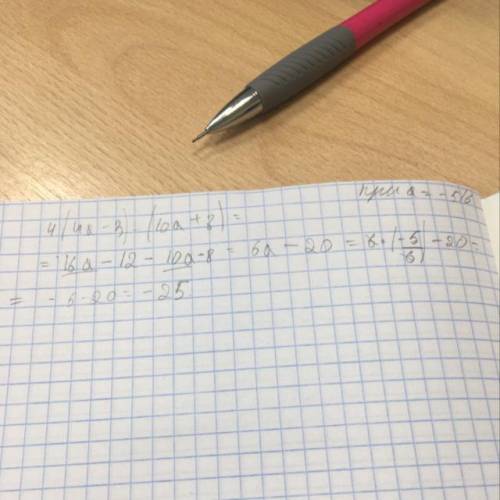 при a = -5/6
4(4a-3)-(10a+8)=
= 16a-12-10a-8 = 6a-20 = 6·(-5/6)-20=
= -5-20=-25